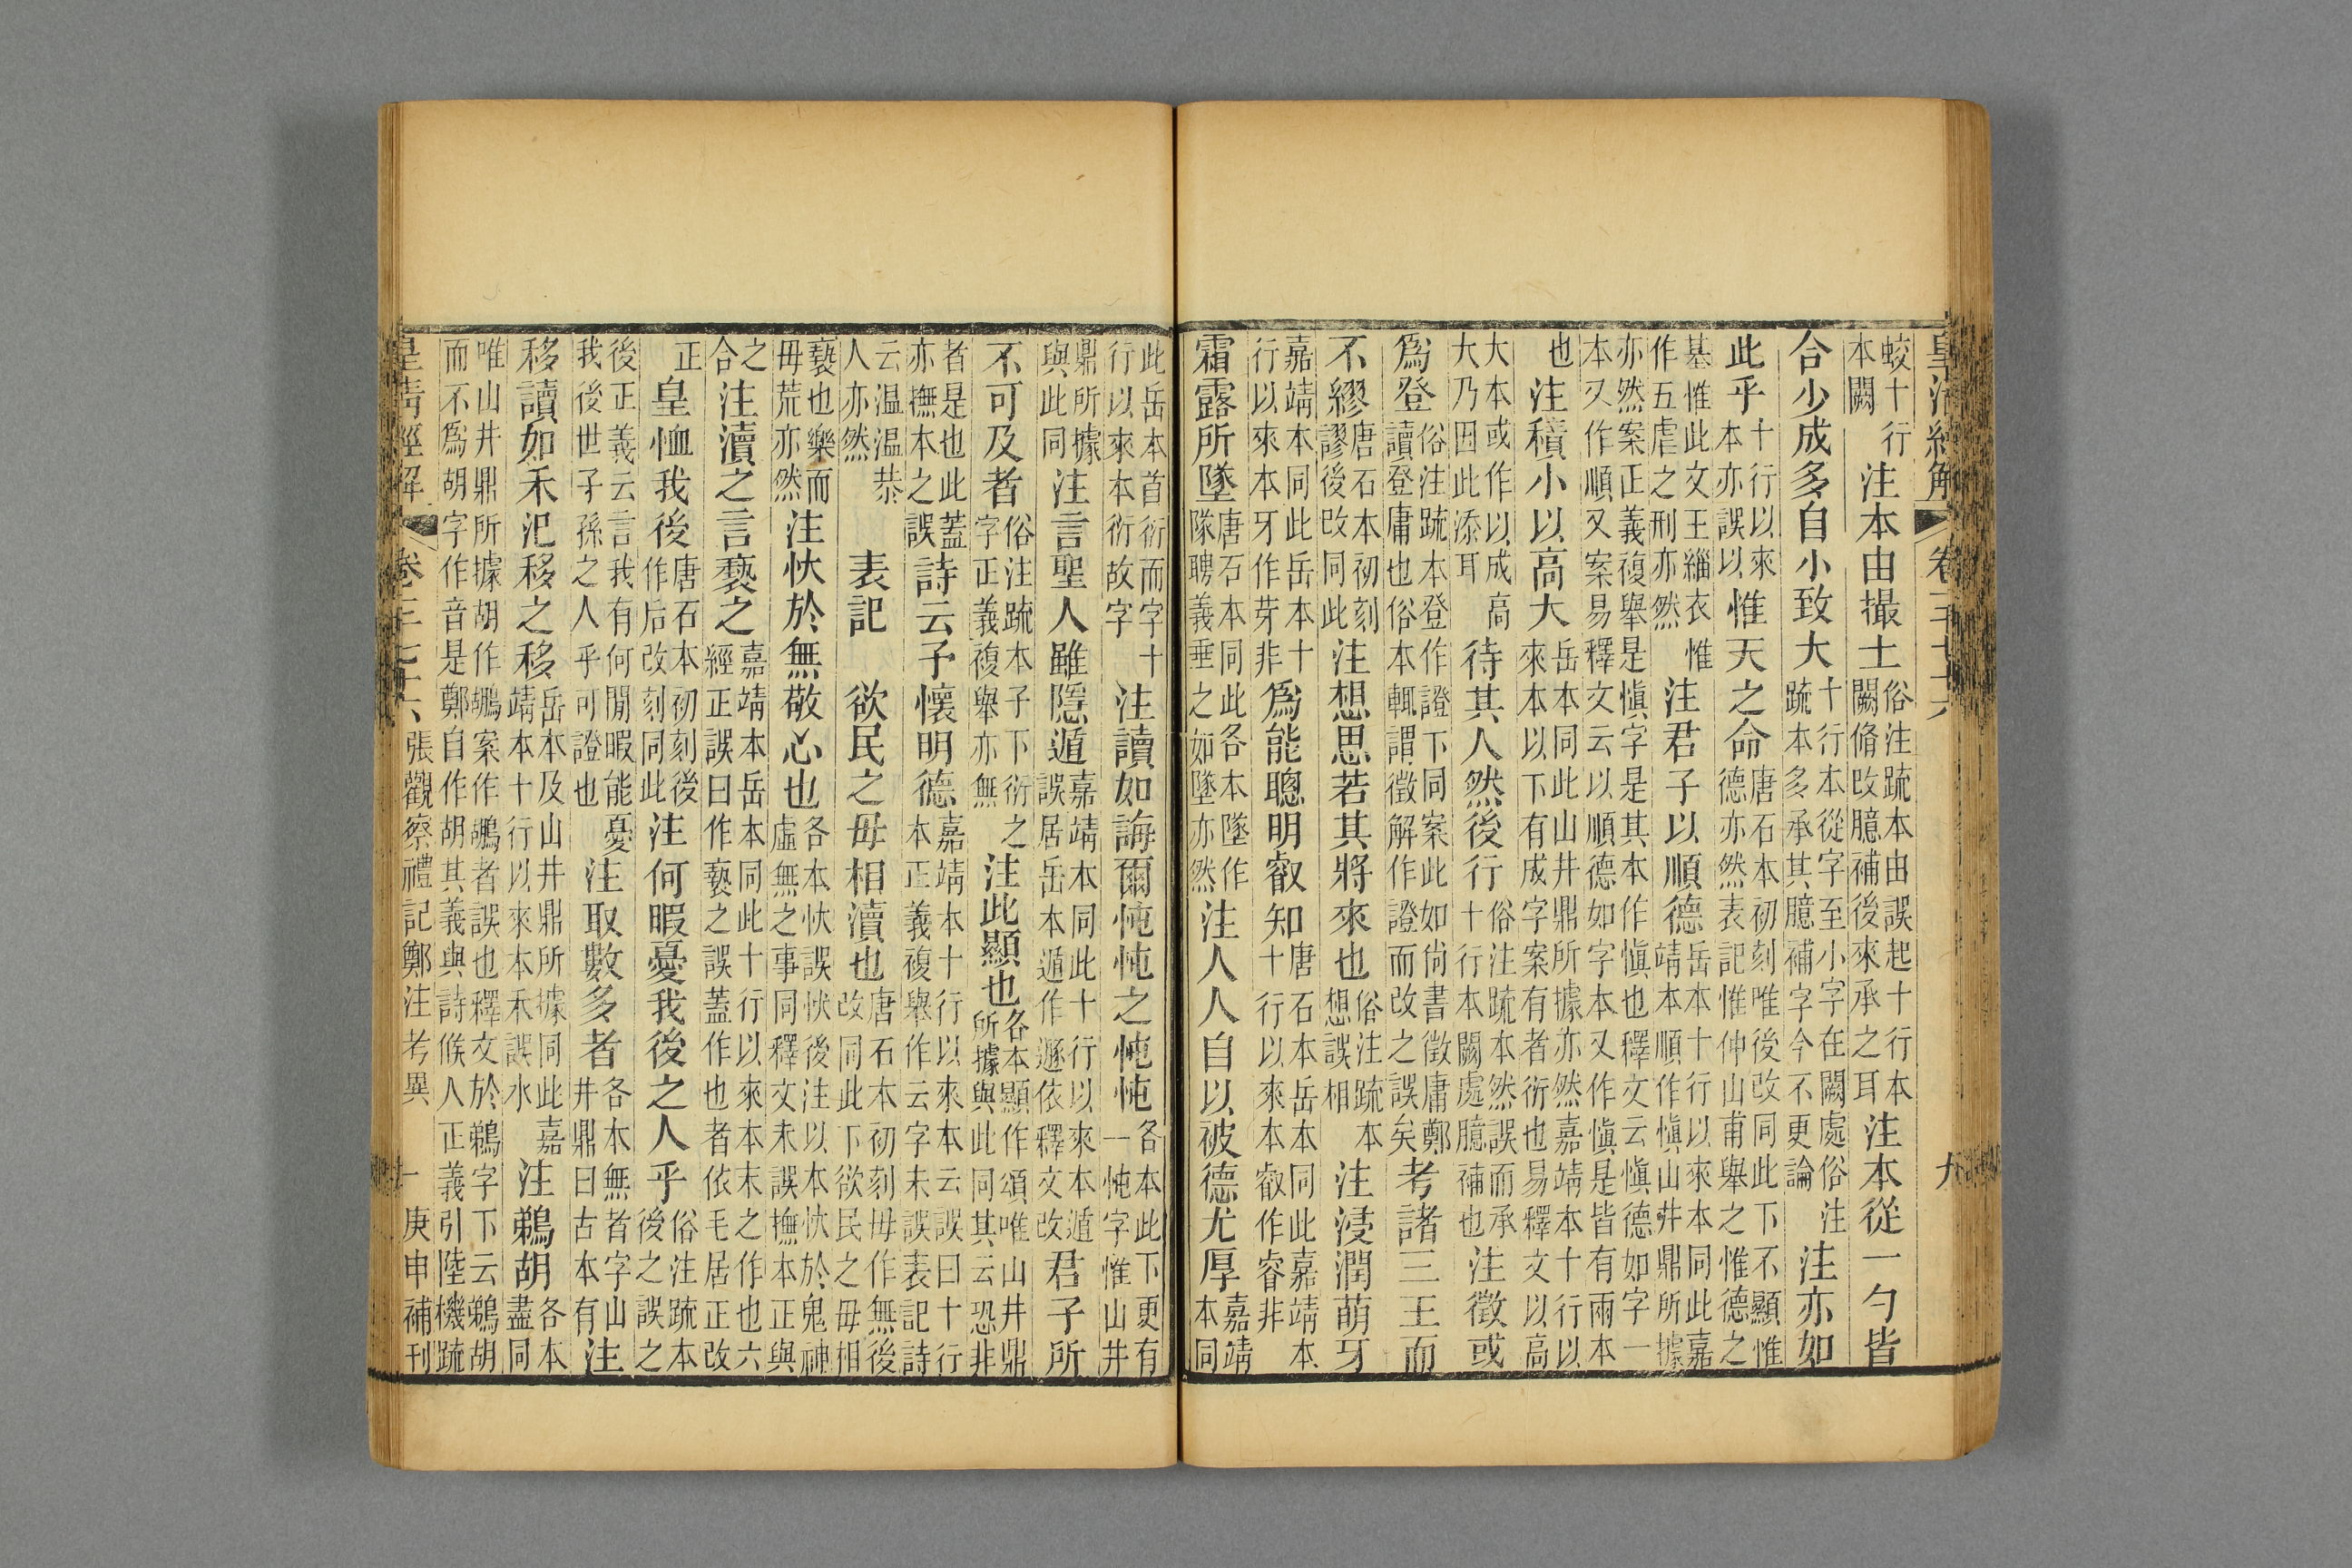 皇清經解 卷一千七十六 九
蛟十行
本闕
注本由撮土
俗注疏本由誤起十行本
闕脩改臆補後來承之耳
注本從一勺皆
合少成多自小致大
十行本從字至小字在闕處俗注
疏本多承其臆補字今不更論
注亦如
此乎
十行以來
本亦誤以
惟天之命
唐石本初刻唯後改同此下不顯惟
德亦然表記惟仲山甫舉之惟德之
基惟此文王緇衣惟
作五虐之刑亦然
注君子以順德
岳本十行以來本同此嘉
靖本順作愼山井鼎所據
亦然案正義複舉是愼字是其本作愼也釋文云愼德如字一
本又作順又案易釋文云以順德如字本又作愼是皆有兩本
也
注積小以高大
岳本同此山井鼎所據亦然嘉靖本十行以
來本以下有成字案有者衍也易釋文以高
大本或作以成高
大乃因此添耳
待其人然後行
俗注疏本然誤而承
十行本闕處臆補也
注徵或
爲登
俗注疏本登作證下同案此如尙書徵庸鄭
讀登庸也俗本輒謂徵解作證而改之誤矣
考諸三王而
不繆
唐石本初刻
謬後改同此
注想思若其將來也
俗注疏本
想誤相
注浸潤萌牙
嘉靖本同此岳本十
行以來本牙作芽非
爲能聰明叡知
唐石本岳本同此嘉靖本
十行以來本叡作睿非
霜露所墜
唐石本同此各本墜作
隊聘義垂之如墜亦然
注人人自以被德尤厚
嘉靖
本同
此岳本首衍而字十
行以來本衍故字
注讀如誨爾忳忳之忳忳
各本此下更有
一忳字惟山井
鼎所據
與此同
注言聖人雖隱遁
嘉靖本同此十行以來本遁
誤居岳本遁作遯依釋文改
君子所
不可及者
俗注疏本子下衍之
字正義複舉亦無
注此顯也
各本顯作頌唯山井鼎
所據與此同其云恐非
者是也此蓋
亦撫本之誤
詩云予懷明德
嘉靖本十行以來本云誤曰十行
本正義複舉作云字未誤表記詩
云温温恭
人亦然
表記
欲民之毋相瀆也
唐石本初刻毋作無後
改同此下欲民之毋相
褻也樂而
毋荒亦然
注忕於無敬心也
各本忕誤怏後注以本忕於鬼神
虛無之事同釋文未誤撫本正與
之
合
注瀆之言褻之
嘉靖本岳本同此十行以來本末之作也六
經正誤曰作褻之誤蓋作也者依毛居正改
正
皇恤我後
唐石本初刻後
作后改刻同此
注何暇憂我後之人乎
俗注疏本
後之誤之
後正義云言我有何閒暇能憂
我後世子孫之人乎可證也
注取數多者
各本無者字山
井鼎曰古本有
注
移讀如禾汜移之移
岳本及山井鼎所據同此嘉
靖本十行以來本禾誤水
注鵜胡
各本
盡同
唯山井鼎所據胡作鶘案作鶘者誤也釋文於鵜字下云鵜胡
而不爲胡字作音是鄭自作胡其義與詩候人正義引陸機疏
皇清經解 卷一千七十六 張觀察禮記鄭注考異 十 庚申補刊